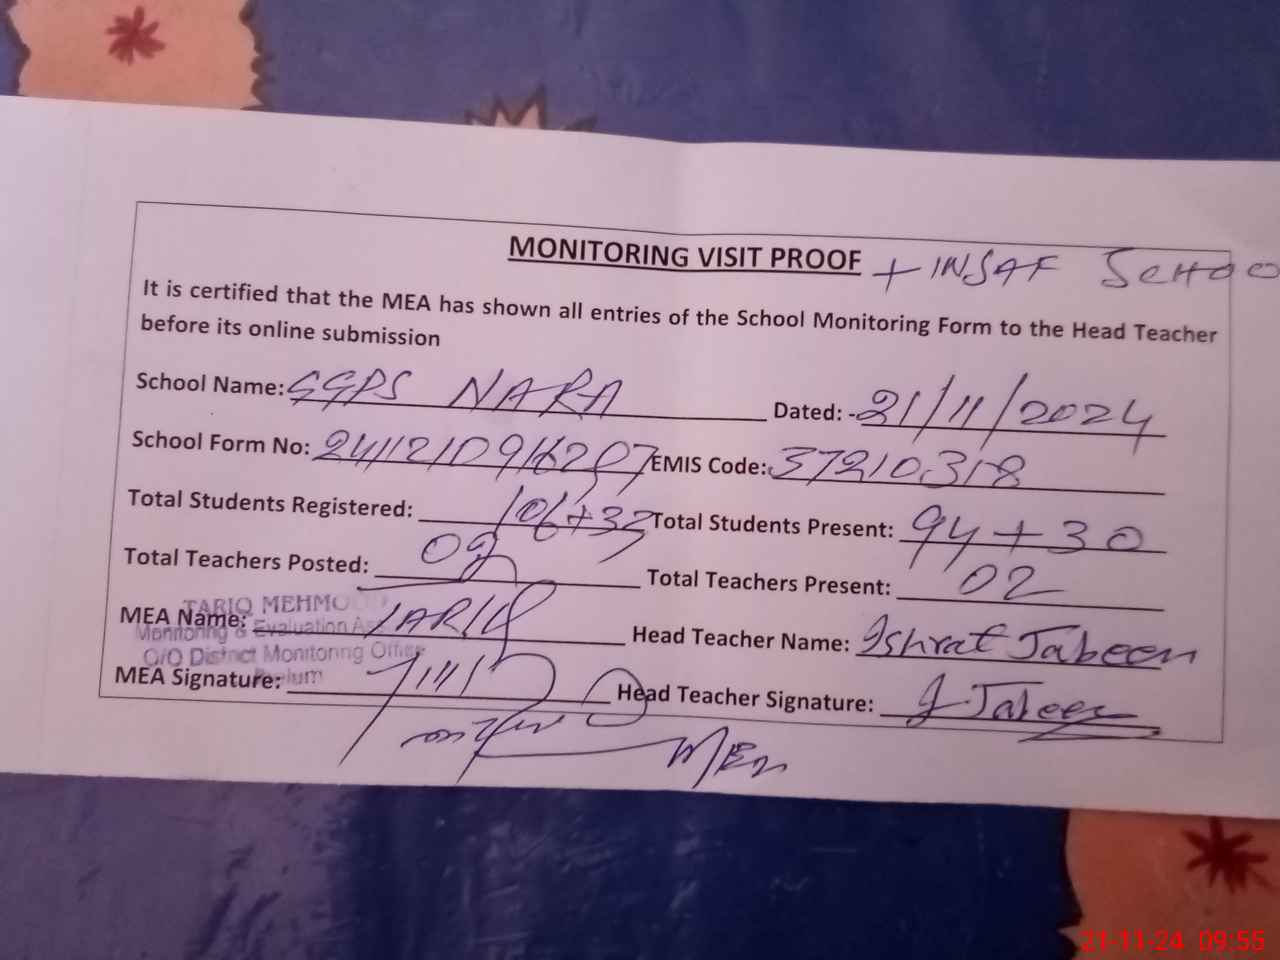 MONITORING VISIT PROOF + INSAF SCHOO
It is certified that the MEA has shown all entries of the School Monitoring Form to the Head Teacher
before its online submission
School Name: GGPS NARA Dated: - 21/11/2024
School Form No: EMIS Code: 37210318
Total Students Registered: Total Students Present: 94+30
Total Teachers Posted: 02 Total Teachers Present: 02
TARIQ MEHMOOD
MEA Name: TARIQ Head Teacher Name: Ishrat Jabeen
Monitoring & Evaluation As
O/O District Monitoring Office
MEA Signature: Head Teacher Signature: I. Jabeen
MEA
21-11-24 09:55